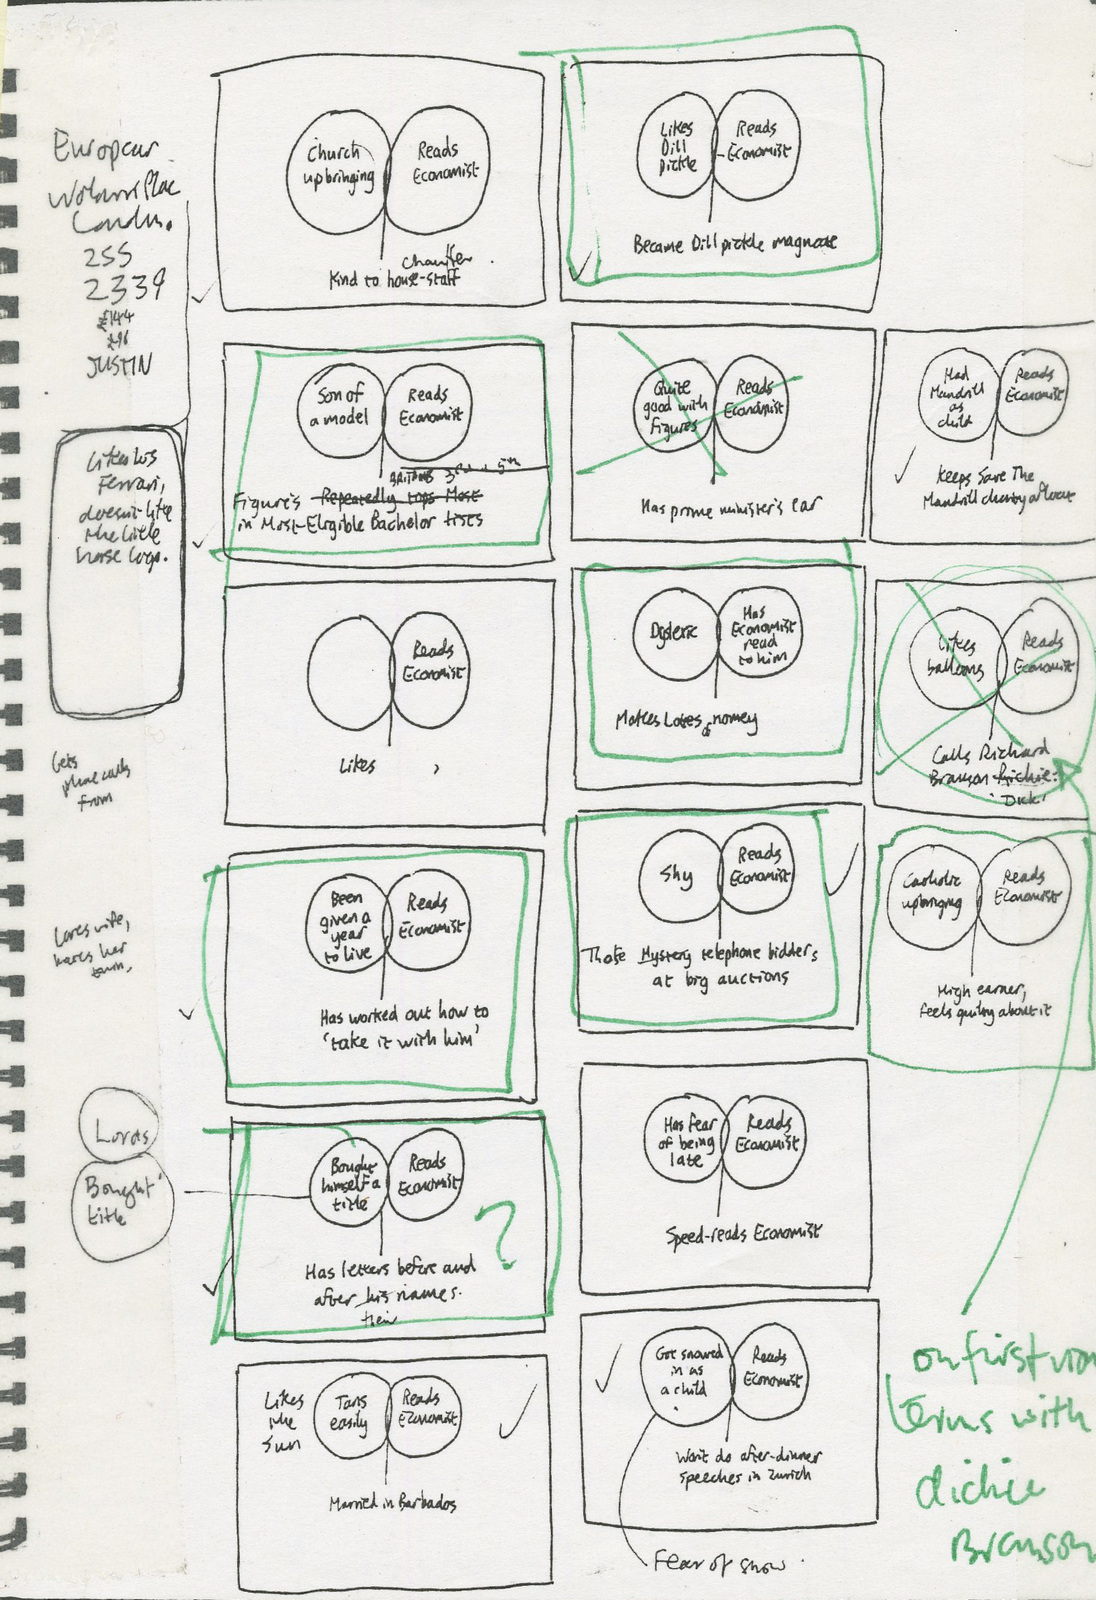 Europcar
London.
255
2339
£144
£96
JUSTIN
Likes his
Ferrari,
doesn't like
the little
horse logo.
Gets
phone calls
from
Loves wife,
hates her
Lords
Bought
title
Church
upbringing
Reads
Economist
chauffer.
Kind to house-staff
Likes
Dill
Pickle
Reads
Economist
Became Dill pickle magnate
Son of
a model
Reads
Economist
3rd + 5th
Figure's Repeatedly tops Most
in Most-Eligible Bachelor lists
Quite
good with
Figures
Reads
Economist
Has prime minister's ear
Had
Mandrill
as
child
Reads
Economist
Keeps Save The
Mandrill charity afloat
Reads
Economist
Likes ,
Dyslexic
Has
Economist
read
to him
Makes Lotes of nomey
Likes
balloons
Reads
Economist
Calls Richard
Branson Richie.
'Dick'
Been
given a
year
to live
Reads
Economist
Has worked out how to
'take it with him'
Shy
Reads
Economist
Those Mystery telephone bidders
at big auctions
Catholic
upbringing
Reads
Economist
High earner,
feels guilty about it
Bought
himself a
title
Reads
Economist
?
Has letters before and
after his names.
their
Has fear
of being
late
Reads
Economist
Speed-reads Economist
Likes
the
Sun
Tans
easily
Reads
Economist
Married in Barbados
Got snowed
in as
a child
Reads
Economist
Won't do after-dinner
speeches in Zurich
Fear of snow.
on first
terms with
dickie
Branson